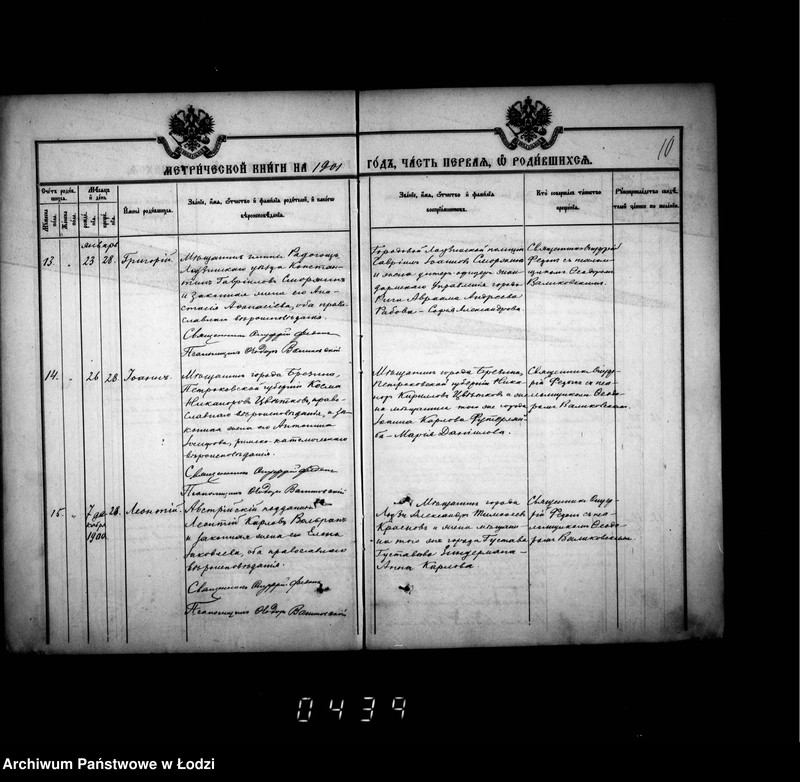 МЕТРИЧЕСКОЙ КНИГИ НА 1901
ГОДЪ, ЧАСТЬ ПЕРВАЯ, Ѿ РОДИВШИХСЯ.
10
Счетъ родившихся.
Мѣсяцъ и день.
Имена родившихся.
Званіе, имя, отчество и фамилія родителей, и какого
вѣроисповѣданія.
Званіе, имя, отчество и фамилія
воспріемниковъ.
Кто совершалъ таинство
крещенія.
январь
13. 23 28. Григорій.
Мѣщанинъ гмины Радогощъ
Лодзинскаго уѣзда Констан-
тинъ Гавріиловъ Сморякинъ
и законная жена его Ана-
стасія Афанасіева, оба право-
славнаго вѣроисповѣданія.
Священникъ Онуфрій
Псаломщикъ Ѳеодоръ
Городовой Лодзинской полиціи
Гавріилъ Іоанновъ Сморякинъ
и жена унтеръ-офицера жан-
дармскаго Управленія города
Риги Авраама Андреева
Рабова – Софія Александрова.
Священникъ Онуфрій
съ псалом-
щикомъ Ѳеодоромъ
14. 26 28. Іоаннъ.
Мѣщанинъ города Березина,
Петроковской губерніи Косма
Никаноровъ Цвѣтковъ, право-
славнаго вѣроисповѣданія, и за-
конная жена его Антонина
Іосифова, римско-католическаго
вѣроисповѣданія.
Священникъ Онуфрій
Псаломщикъ Ѳеодоръ
Мѣщанинъ города Березина,
Петроковской губерніи
Кирилловъ Цвѣтковъ и
мѣщанина того же города
Іоанна Карлова
Марія Даніилова.
Священникъ Онуф-
рій съ пса-
ломщикомъ Ѳеодо-
ромъ
15. 7 де-
кабря
1900. 28. Леонтій.
Австрійскій подданный
Леонтій Карловъ
и законная жена его Елена
Яковлева, оба православнаго
вѣроисповѣданія.
Священникъ Онуфрій
Псаломщикъ Ѳеодоръ
Мѣщанинъ города
Лодзи Александръ Тимоѳеевъ
Красновъ и жена мѣщани-
на того же города Густава
Густавова
Анна Карлова
Священникъ Онуф-
рій съ пса-
ломщикомъ Ѳеодо-
ромъ
0439
Archiwum Państwowe w Łodzi